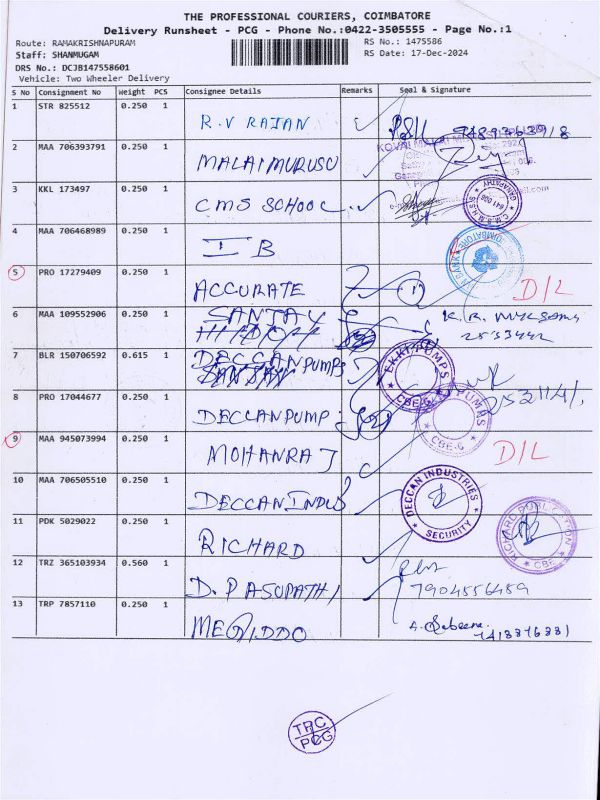 THE PROFESSIONAL COURIERS, COIMBATORE
Delivery Runsheet - PCG - Phone No.:0422-3505555 - Page No.:1
Route: RAMAKRISHNAPURAM
RS No.: 1475586
Staff: SHANMUGAM
RS Date: 17-Dec-2024
DRS No.: DCJB147558601
Vehicle: Two Wheeler Delivery
S No Consignment No Weight PCS Consignee Details Remarks Seal & Signature
1 STR 825512 0.250 1 R.V RAJAN
2 MAA 706393791 0.250 1 MALAIMURUSU
3 KKL 173497 0.250 1 CMS SCHOOL
4 MAA 706468989 0.250 1 I B
5 PRO 17279409 0.250 1 ACCURATE D/L
6 MAA 109552906 0.250 1 SANJAY
7 BLR 150706592 0.615 1 DECCANPUMPS EKKI PUMPS CBE-6
8 PRO 17044677 0.250 1 DECCANPUMP PUMPS CBE-6
9 MAA 945073994 0.250 1 MOHANRAJ D/L
10 MAA 706505510 0.250 1 DECCAN INDUS DECCAN INDUSTRIES SECURITY
11 PDK 5029022 0.250 1 RICHARD RICHARD PUBLICATION CBE
12 TRZ 365103934 0.560 1 D. PASUPATHI 7904556489
13 TRP 7857110 0.250 1 MEGIDDO
TPC
PCG